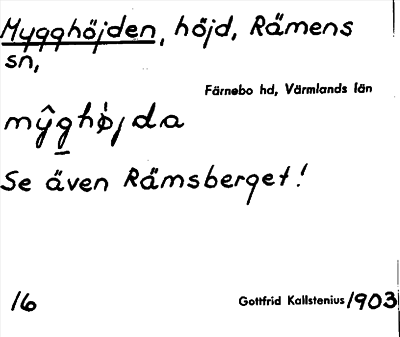 Mygghöjden, höjd, Rämens
sn,
Färnebo hd, Värmlands län
mŷghöjda
Se även Rämsberget!
16
Gottfrid Kallstenius 1903